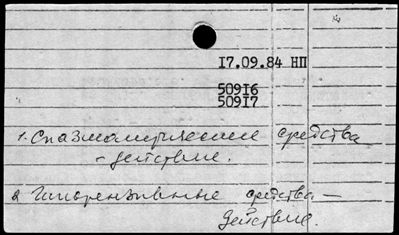 17.09.84 НП
50916
50917
1. Спазмолитические средства
- действие.
2 Гипотензивные средства -
действие.